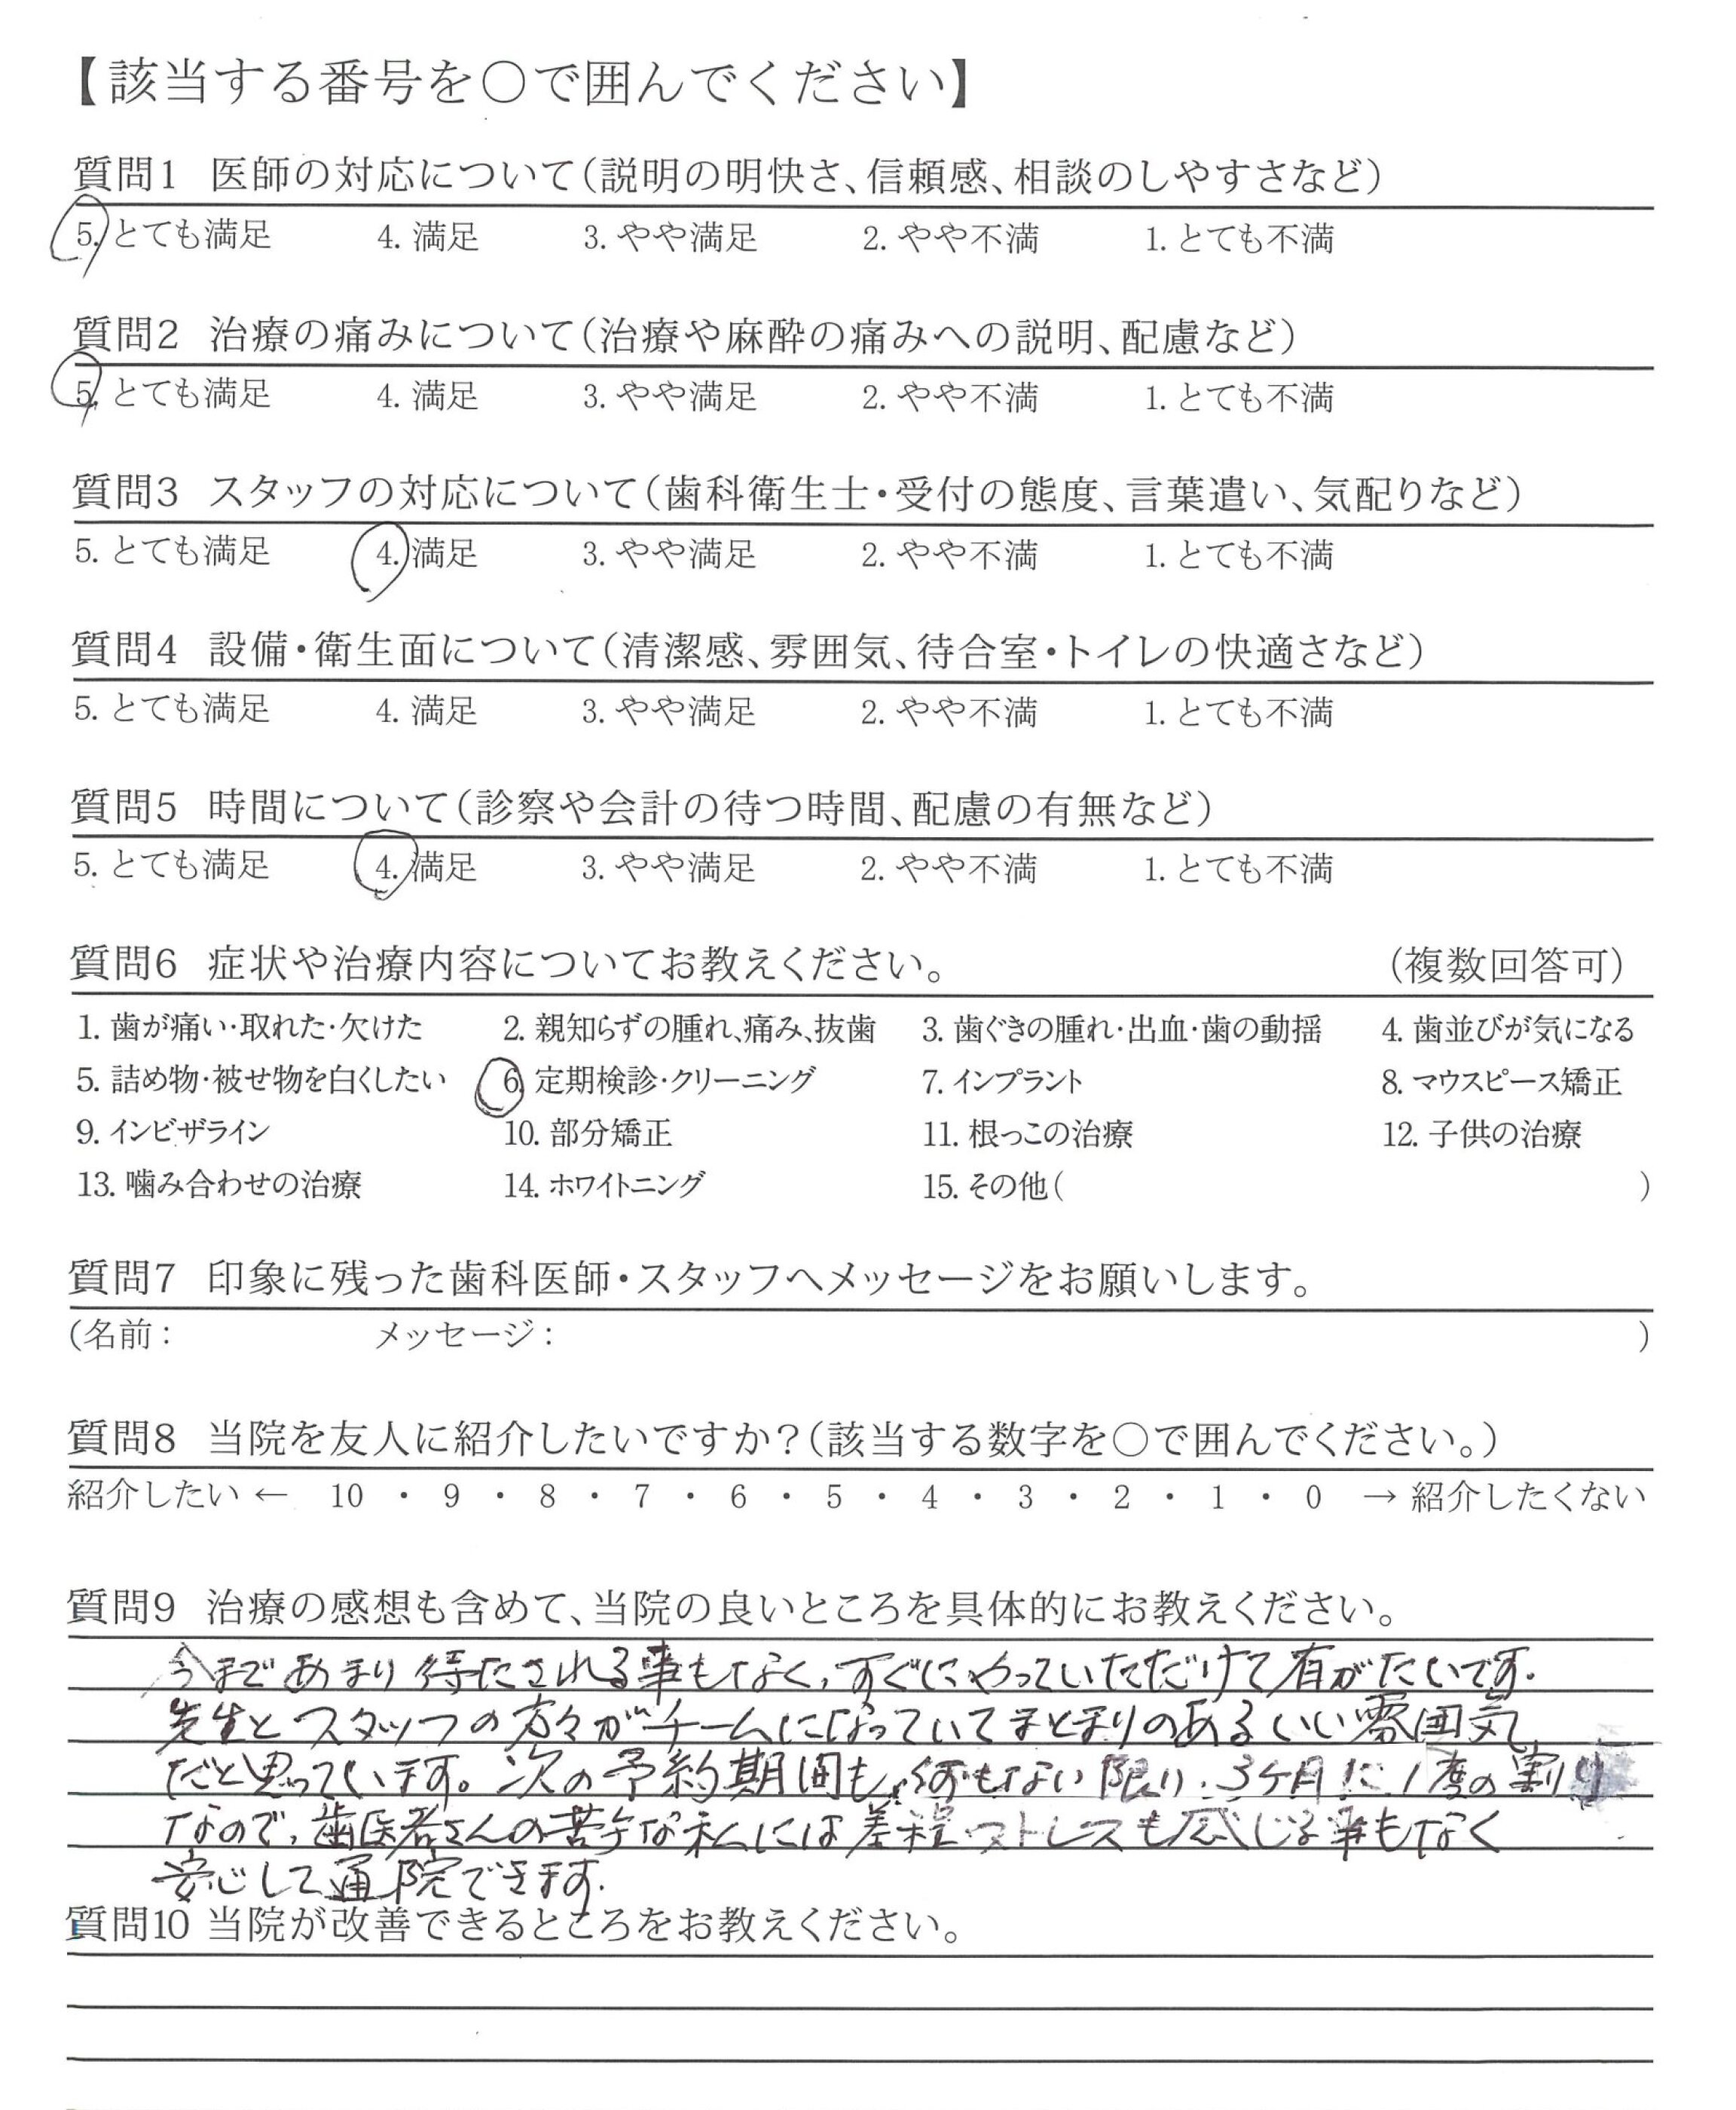 【該当する番号を○で囲んでください】
質問1 医師の対応について(説明の明快さ、信頼感、相談のしやすさなど)
5. とても満足 4. 満足 3. やや満足 2. やや不満 1. とても不満
質問2 治療の痛みについて(治療や麻酔の痛みへの説明、配慮など)
5. とても満足 4. 満足 3. やや満足 2. やや不満 1. とても不満
質問3 スタッフの対応について(歯科衛生士・受付の態度、言葉遣い、気配りなど)
5. とても満足 4. 満足 3. やや満足 2. やや不満 1. とても不満
質問4 設備・衛生面について(清潔感、雰囲気、待合室・トイレの快適さなど)
5. とても満足 4. 満足 3. やや満足 2. やや不満 1. とても不満
質問5 時間について(診察や会計の待つ時間、配慮の有無など)
5. とても満足 4. 満足 3. やや満足 2. やや不満 1. とても不満
質問6 症状や治療内容についてお教えください。 (複数回答可)
1. 歯が痛い・取れた・欠けた 2. 親知らずの腫れ、痛み、抜歯 3. 歯ぐきの腫れ・出血・歯の動揺 4. 歯並びが気になる
5. 詰め物・被せ物を白くしたい 6. 定期検診・クリーニング 7. インプラント 8. マウスピース矯正
9. インビザライン 10. 部分矯正 11. 根っこの治療 12. 子供の治療
13. 噛み合わせの治療 14. ホワイトニング 15. その他( )
質問7 印象に残った歯科医師・スタッフへメッセージをお願いします。
(名前: メッセージ: )
質問8 当院を友人に紹介したいですか?(該当する数字を○で囲んでください。)
紹介したい ← 10 ・ 9 ・ 8 ・ 7 ・ 6 ・ 5 ・ 4 ・ 3 ・ 2 ・ 1 ・ 0 → 紹介したくない
質問9 治療の感想も含めて、当院の良いところを具体的にお教えください。
今まであまり待たされる事もなく、すぐにやっていただけて有がたいです。
先生とスタッフの方々がチームになっていてまとまりのあるいい雰囲気
だと思っています。次の予約期間も、何もない限り、3ヶ月に1度の割り
なので、歯医者さんの苦手な私には差程ストレスも感じる事もなく
安心して通院できます。
質問10 当院が改善できるところをお教えください。